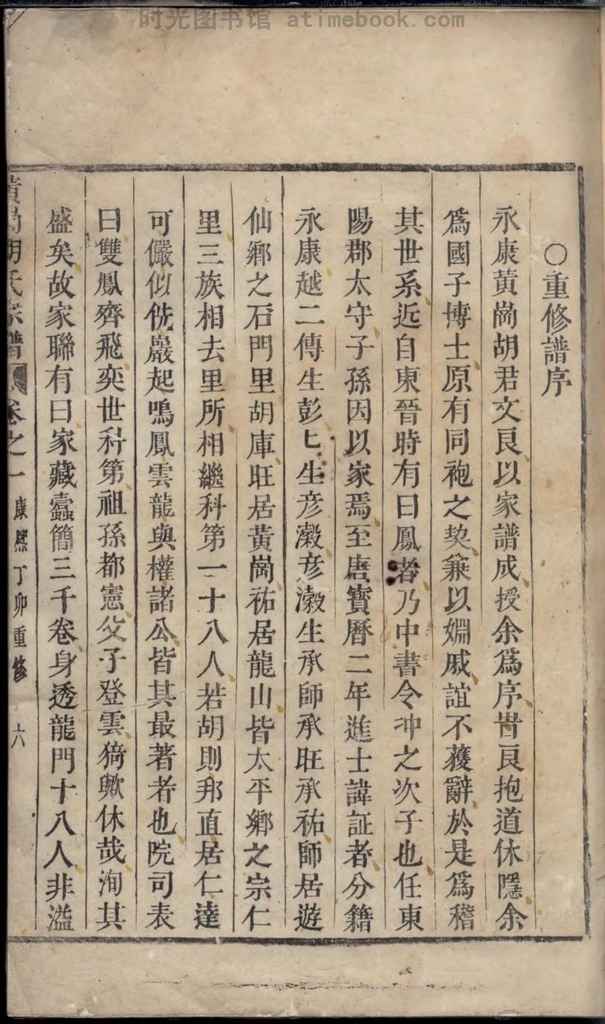 时光图书馆 atimebook.com
○重修譜序
永康黃崗胡君文良以家譜成授余爲序昔良抱道休隱余
爲國子博士原有同袍之契兼以婣戚誼不獲辭於是爲稽
其世系近自東晉時有曰鳳者乃中書令冲之次子也任東
陽郡太守子孫因以家焉至唐寶曆二年進士諱証者分籍
永康越二傳生彭七生彦瀔彦瀔生承師承旺承祐師居遊
仙鄉之石門里胡庫旺居黃崗祐居龍山皆太平鄉之宗仁
里三族相去里所相繼科第一十八人若胡則邦直居仁達
可儼似侁巖起鳴鳳雲龍與權諸公皆其最著者也院司表
曰雙鳳齊飛奕世科第祖孫都憲父子登雲猗歟休哉洵其
盛矣故家聯有曰家藏蠹簡三千卷身透龍門十八人非溢
黃崗胡氏家譜 卷之一 康熙丁卯重修 六